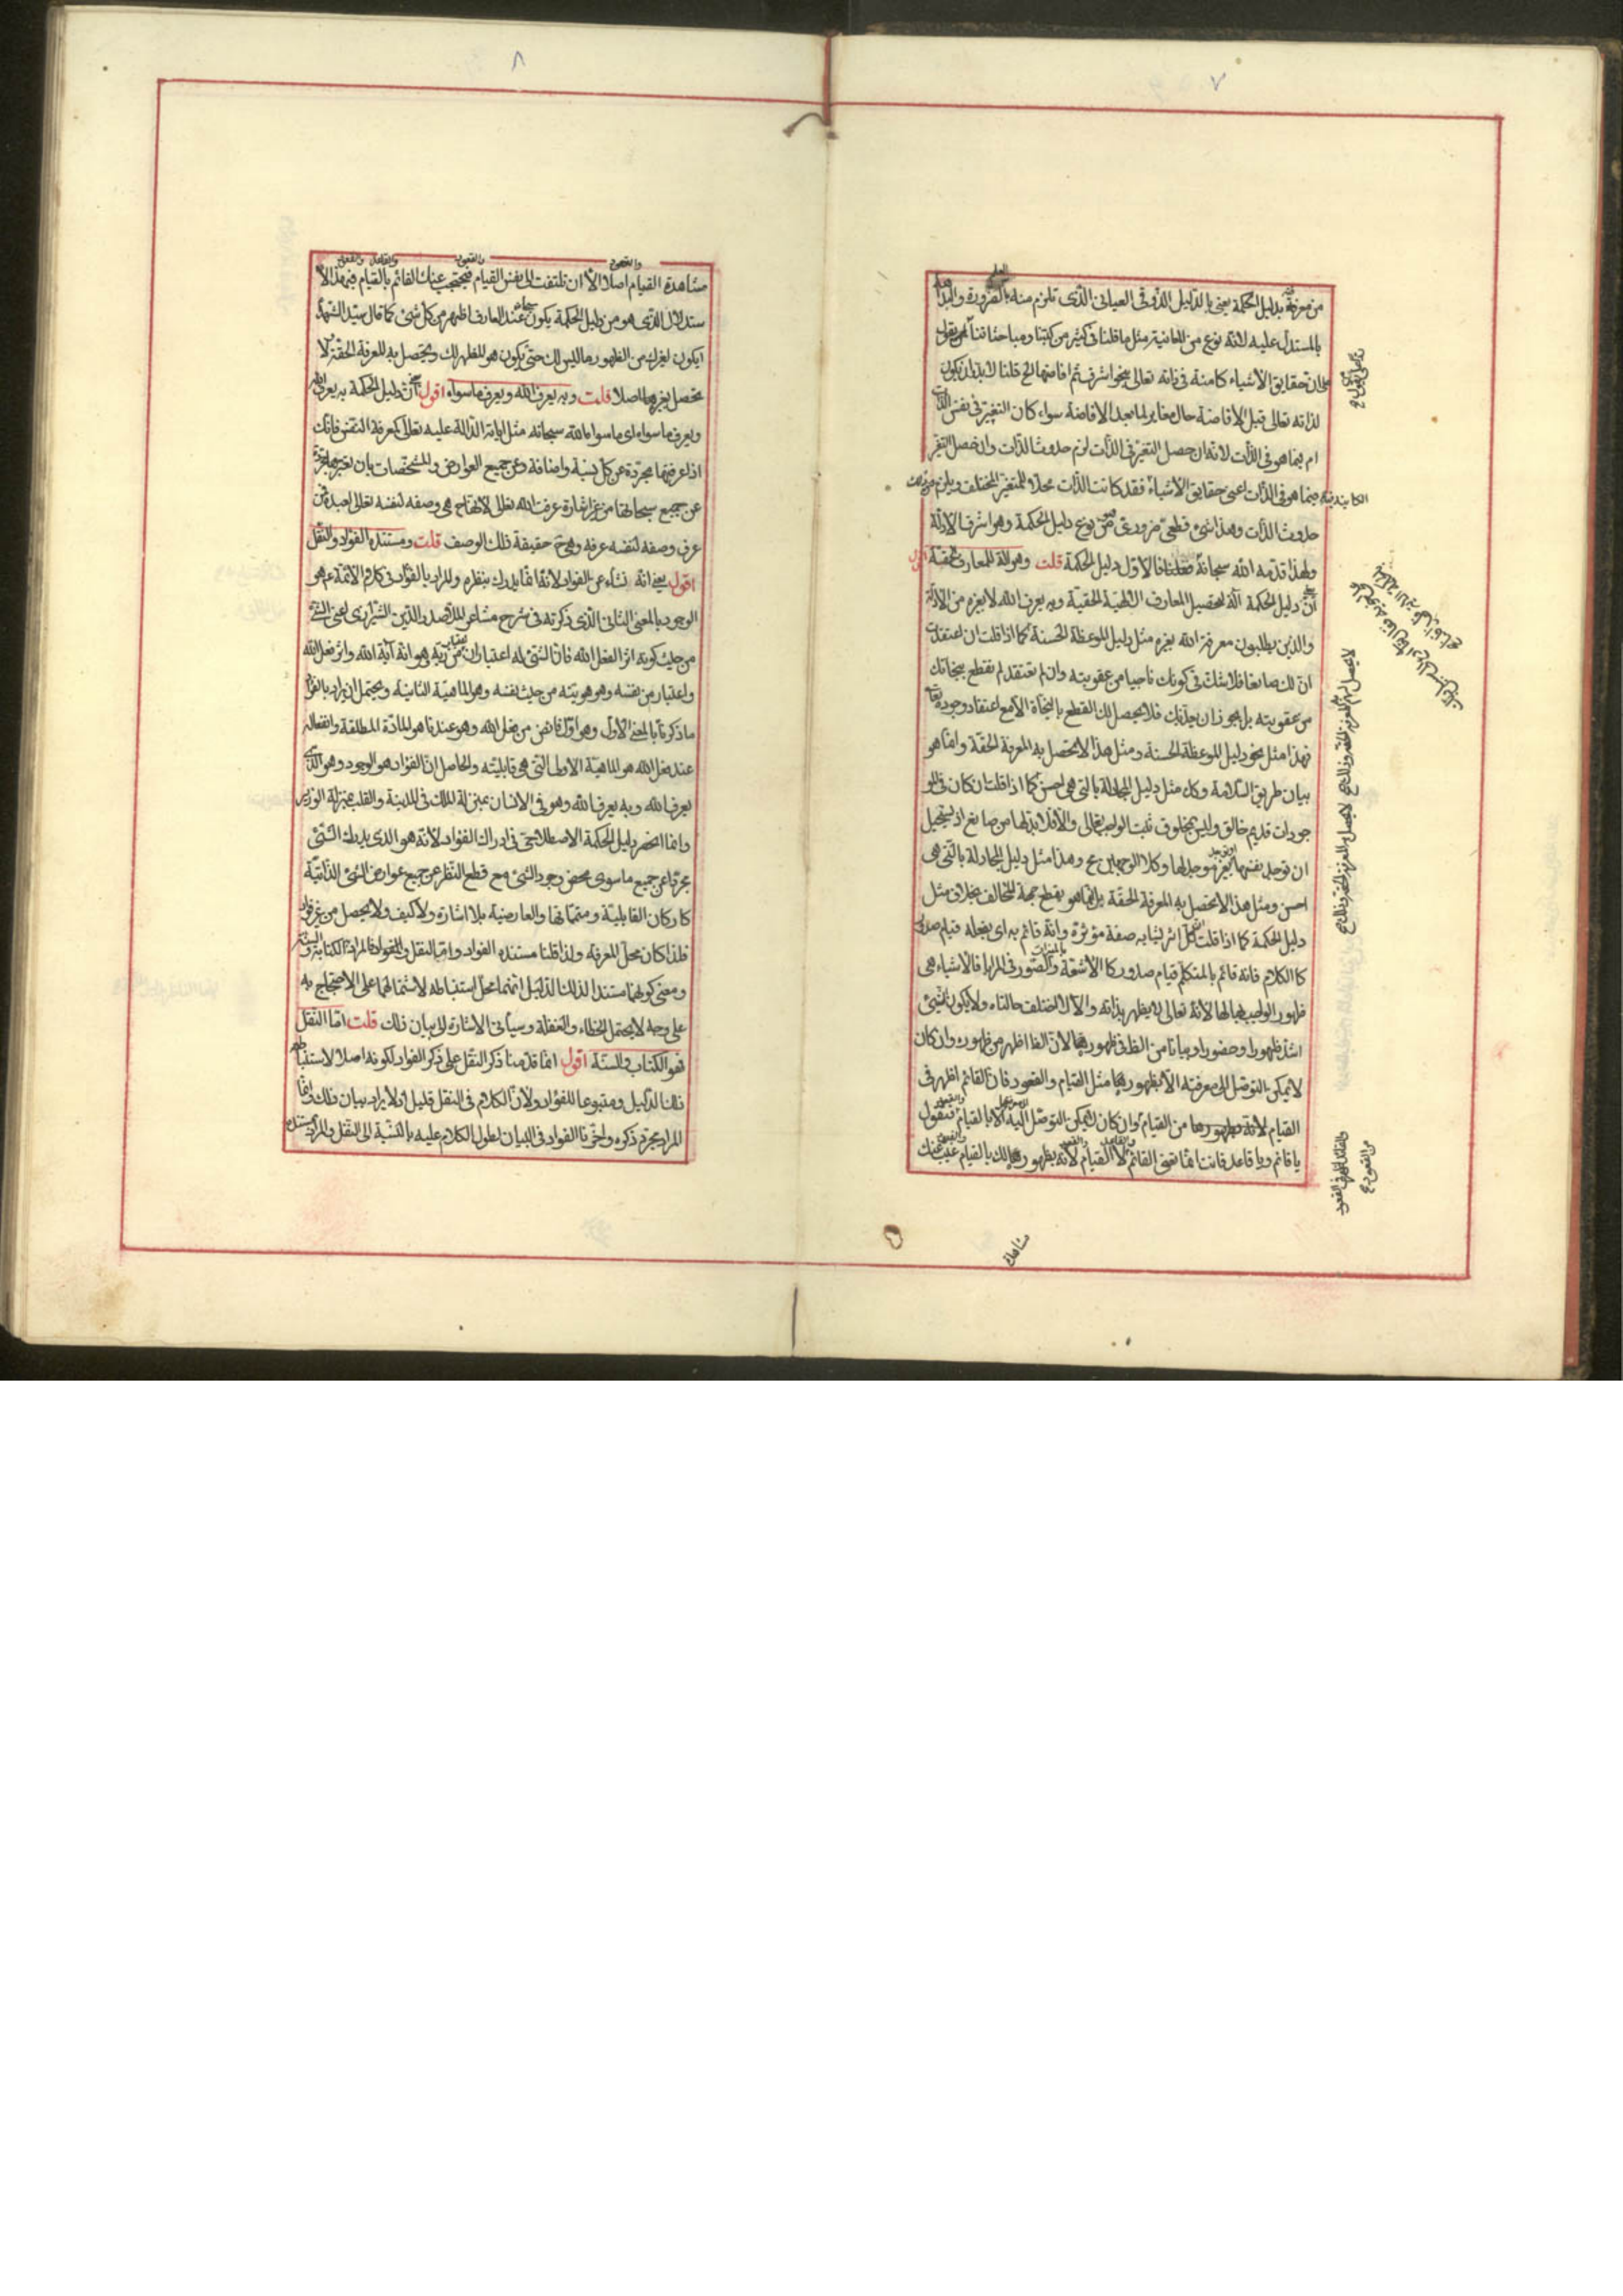 ٧
من معرفة بدليل الحكمة يعني بالدليل الذوقي العياني الذي تلزم منه بالضرورة والبداهة
بالمستدل عليه لانه نوع من المعاينة مثل ما قلنا في كثير من كتبنا ومباحثاتنا لمن يقول
ان حقايق الاشياء كامنة في ذاته تعالى بنحو اشرف ثم افاضها الخ قلنا لا بد ان يكون
لذاته تعالى قبل الافاضة حال مغاير لما بعد الافاضة سواء كان التغير في نفس الذات
ام بما هو في الذات لانه ان حصل التغير في الذات لزم حدوث الذات وان حصل التغير
فيما هو في الذات اعني حقايق الاشياء فقد كانت الذات محلا للمتغير المختلف ويلزم منه
حدوث الذات وهذا شيء قطعي ضروري من نوع دليل الحكمة وهو اشرف الادلة
ولهذا قدمه الله سبحانه فقلنا فالاول دليل الحكمة قلت وهو الة للمعارف الحقية اقول
ان دليل الحكمة آلة لتحصيل المعارف الالهية الحقية وبه يعرف الله لا بغيره من الادلة
والذين يطلبون معرفة الله بغيره مثل دليل الموعظة الحسنة كما اذا قلت ان اعتقدت
ان لك صانعا فلا شك في كونك ناجيا من عقوبته وان لم تعتقد لم تقطع بنجاتك
من عقوبته بل يجوز ان يعذبك فلا يحصل لك القطع بالنجاة الا مع اعتقاد وجوده تعالى
فهذا مثل نحو دليل الموعظة الحسنة ومثل هذا لا يحصل به المعرفة الحقة وانما هو
بيان طريق السلامة وكك مثل دليل المجادلة بالتي هي احسن كما اذا قلت ان كان في المو
جودات قديم خالق وليس بمخلوق ثبت الواجب تعالى والا فلا بد لها من صانع اذ يستحيل
ان توجد نفسها او توجد بغير موجد لها وكلا الوجهين مح وهذا مثل دليل المجادلة بالتي هي
احسن ومثل هذا لا يحصل به المعرفة الحقة بل انما هو يقطع حجة المخالف بخلاف مثل
دليل الحكمة كما اذا قلت كل اثر يشابه صفة مؤثره وانه قائم به اي بفعله قيام صدور
كالكلام فانه قائم بالمتكلم قيام صدور كالاشعة بالمنيرات والصور في المرايا فالاشياء هي
ظهور الواجب بها لها لانه تعالى لا يظهر بذاته والا لاختلفت حالتاه ولا يكون شيء
اشد ظهورا وحضورا وبيانا من الظاهر في ظهوره لان الظاهر اظهر من ظهوره وان كان
لا يمكن التوصل الى معرفته الا بظهوره مثل القيام والقعود فان القائم اظهر في
القيام من القيام وان كان لا يمكن التوصل اليه الا بالقيام فتقول
يا قائم ويا قاعد فانت انما تعني القائم لا القيام لانه بظهوره لك بالقيام غيب عنك
مشاهدة
٨
مشاهدة القيام اصلا الا ان تلتفت الى نفس القيام فيحتجب عنك القائم بالقيام فبهذا الا
ستدلال الذي هو من دليل الحكمة يكون سبحانه عند العارف اظهر من كل شيء كما قال سيد الشهداء
ايكون لغيرك من الظهور ما ليس لك حتى يكون هو المظهر لك ويحصل به المعرفة الحقة ولا
تحصل بغيره اصلا قلت وبه يعرف الله ويعرف ما سواه اقول ان دليل الحكمة به يعرف الله
ويعرف ما سواه اي ما سوا الله سبحانه مثل اياته الدالة عليه تعالى كمعرفة النفس فانك
اذا عرفتها مجردة عن كل نسبة واضافة وعن جميع العوارض والمشخصات بان تعتبرها مجردة
عن جميع سبحاتها من غير اشارة عرفت الله تعالى لانها ح هي وصفه لنفسه تعالى لعبده فمن
عرف وصفه لنفسه عرفه وهي ح حقيقة ذلك الوصف قلت ومستنده الفؤاد والنقل
اقول يعني انه نشاء عن الفؤاد لانه انما يدرك بنظره والمراد بالفؤاد في كلام الائمة ع هو
الوجود بالمعنى الثاني الذي ذكرته في شرح مشاعر الملا صدر الدين الشيرازي اعني الشيء
من حيث كونه اثرا لفعل الله فان الشيء له اعتباران اعتبار من ربه هو انه آية الله واثر فعل الله
واعتبار من نفسه وهو هويته من حيث نفسه وهو الماهية الثانية ويحتمل ان يراد بالفؤاد
ما ذكرنا بالمعنى الاول وهو اول فائض من فعل الله وهو عندنا هو المادة المطلقة وانفعاله
عند فعل الله هو الماهية الاولى التي هي قابليته والحاصل ان الفؤاد هو الوجود وهو الذي
يعرف الله وبه يعرف الله وهو في الانسان بمنزلة الملك في المدينة والقلب بمنزلة الوزير
وانما انحصر دليل الحكمة الاصطلاحي في ادراك الفؤاد لانه هو الذي يدرك الشيء
مجردا عن جميع ما سوى محض وجود الشيء مع قطع النظر عن جميع عوارض الشيء الذاتية
كاركان القابلية ومتمماتها والعارضية بلا اشارة ولا كيف ولا يحصل من غير الفؤاد
فلذا كان محل المعرفة ولذا قلنا مستنده الفؤاد واما النقل فالمراد به الكتاب والسنة
ومعنى كونهما مستندا لذلك الدليل انهما محل استنباطه لاشتمالهما على الاحتجاج به
على وجه لا يحتمل الخطاء والغفلة وسيأتي الاشارة الى بيان ذلك قلت اما النقل
فهو الكتاب والسنة اقول انما قدمنا ذكر النقل على ذكر الفؤاد لكونه اصلا لاستنباط
ذلك الدليل ومتبوعا للفؤاد ولان الكلام في النقل قليل اذ لا يراد بيان ذلك وانما
المراد مجرد ذكره واخرنا الفؤاد في البيان لطول الكلام عليه بالنسبة الى النقل والمراد بمستنده